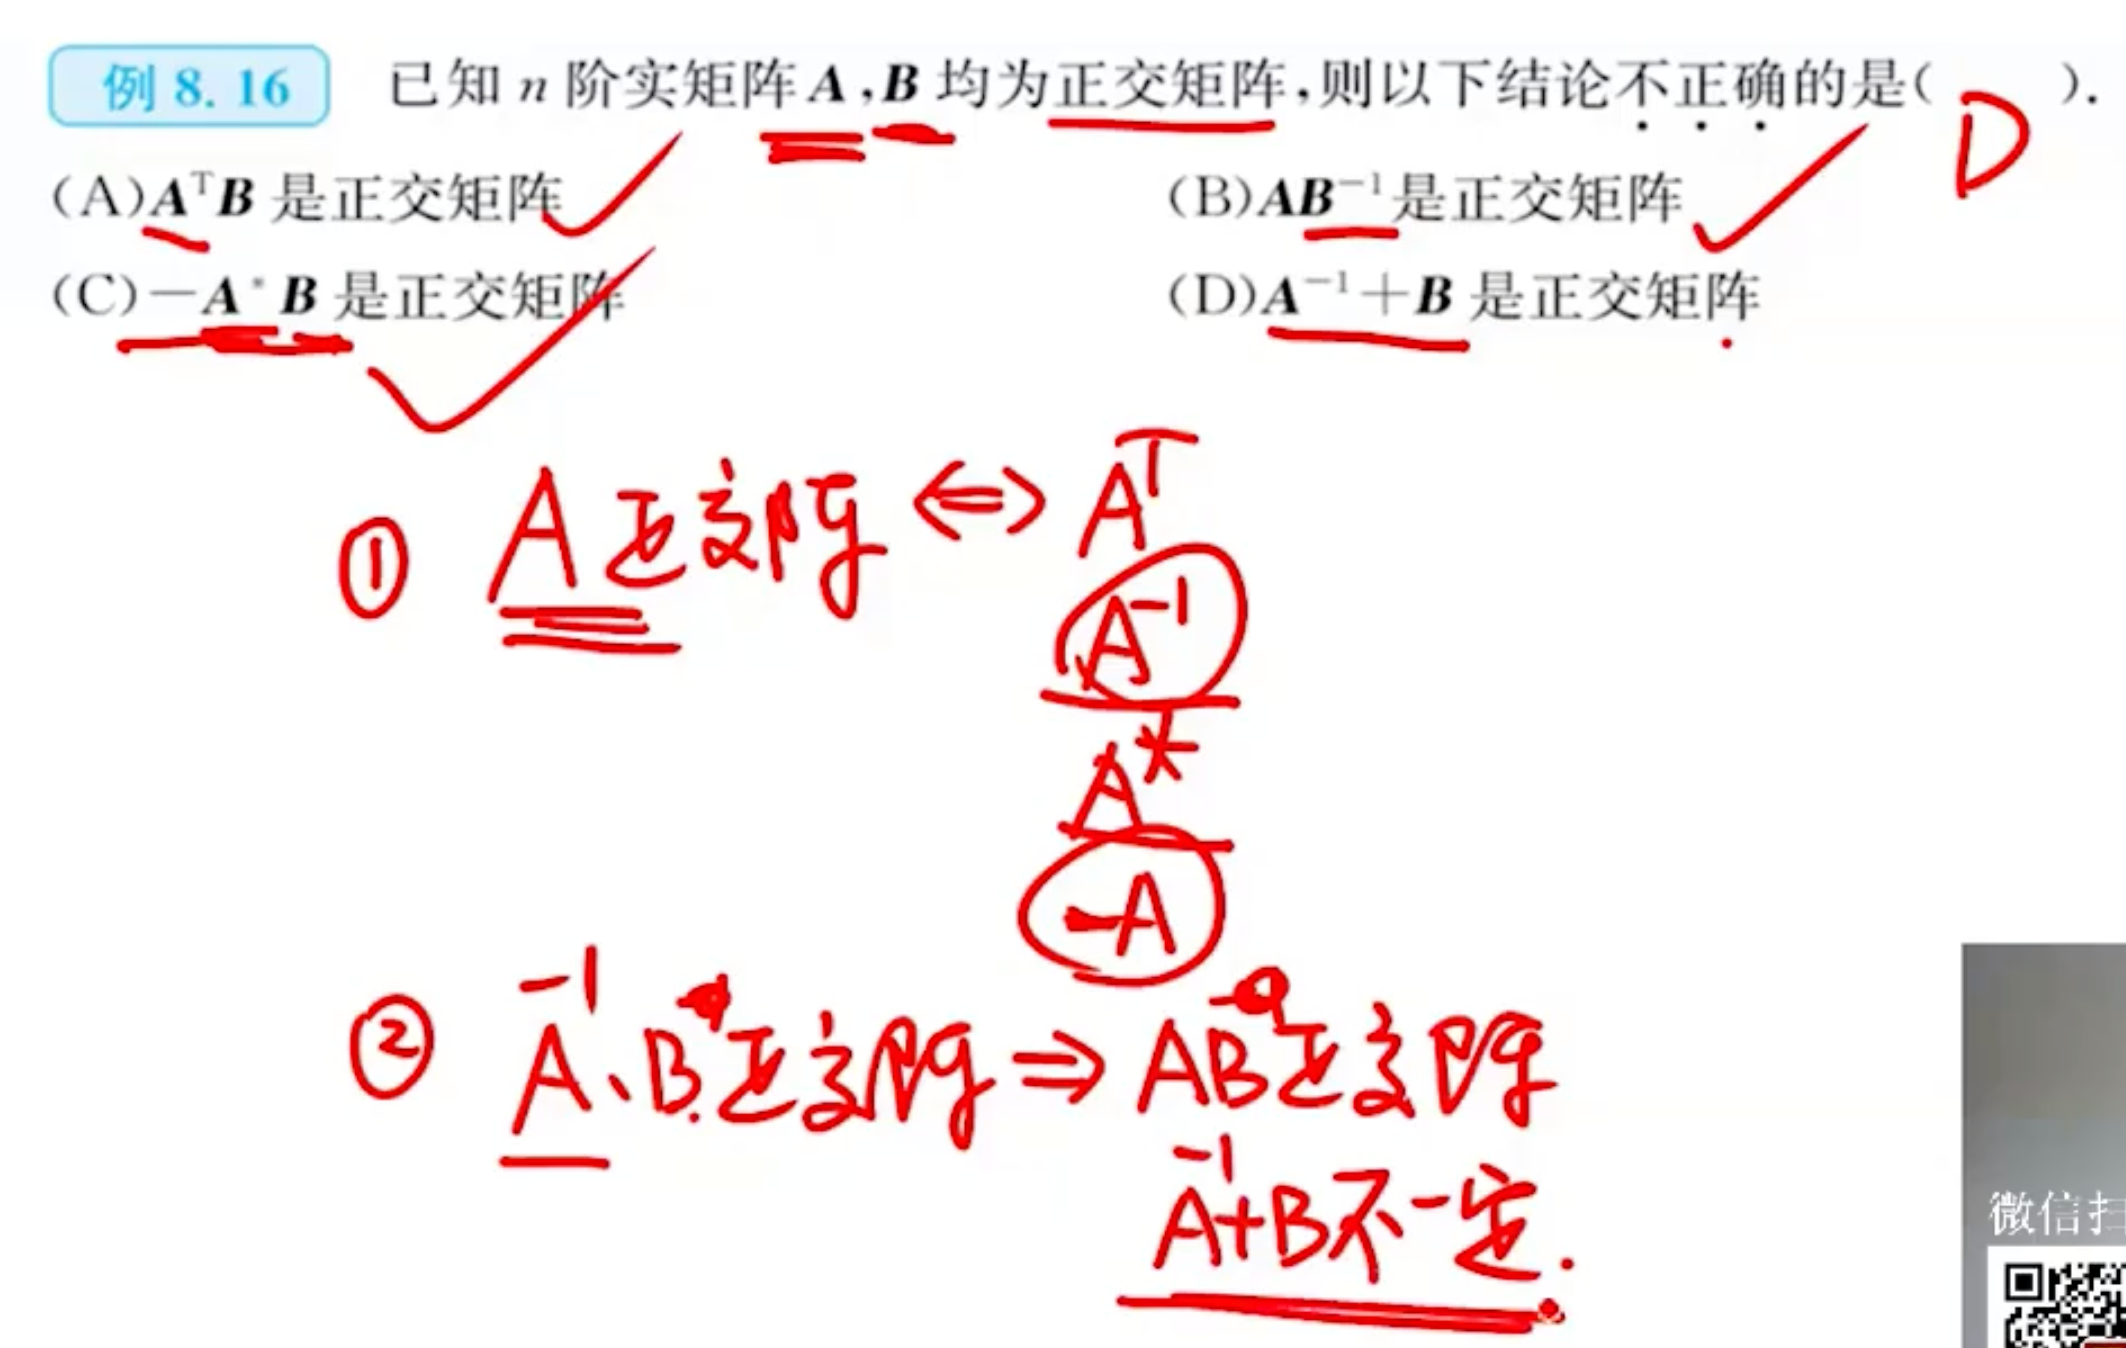 例 8.16 已知 n 阶实矩阵 A,B 均为正交矩阵,则以下结论不正确的是( D ).
(A)AᵀB 是正交矩阵 (B)AB⁻¹是正交矩阵
(C)-A*B 是正交矩阵 (D)A⁻¹+B 是正交矩阵
① A正交阵 ⇔ Aᵀ
A⁻¹
A*
-A
② A⁻¹、B 正交阵 ⇒ AB 正交阵
A⁻¹+B不一定.
微信扫